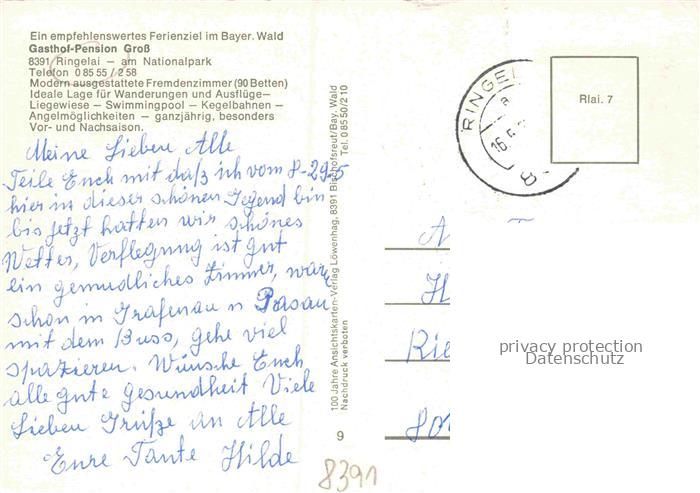 Ein empfehlenswertes Ferienziel im Bayer. Wald
Gasthof-Pension Groß
8391 Ringelai — am Nationalpark
Telefon 0 85 55 / 2 58
Modern ausgestattete Fremdenzimmer (90 Betten)
Ideale Lage für Wanderungen und Ausflüge—
Liegewiese — Swimmingpool — Kegelbahnen —
Angelmöglichkeiten — ganzjährig, besonders
Vor- und Nachsaison.
Meine Lieben Alle
Teile Euch mit daß ich vom 8-29.5
hier in dieser schönen Gegend bin
bis jetzt hatten wir schönes
Wetter, Verflegung ist gut
ein gemudliches Zimmer, war
schon in Grafenau n Passau
mit dem Buss, gehe viel
spazieren. Wünsche Euch
alle gute Gesundheit Viele
Lieben Grüße an Alle
Eure Tante Hilde
100 Jahre Ansichtskarten-Verlag Löwenhag, 8391 Bischofsreut/Bay. Wald
Nachdruck verboten
Tel. 0 85 50/2 10
9
8391
RINGEL
a
16.5.
8
Rlai. 7
A
H
Rie
privacy protection
Datenschutz